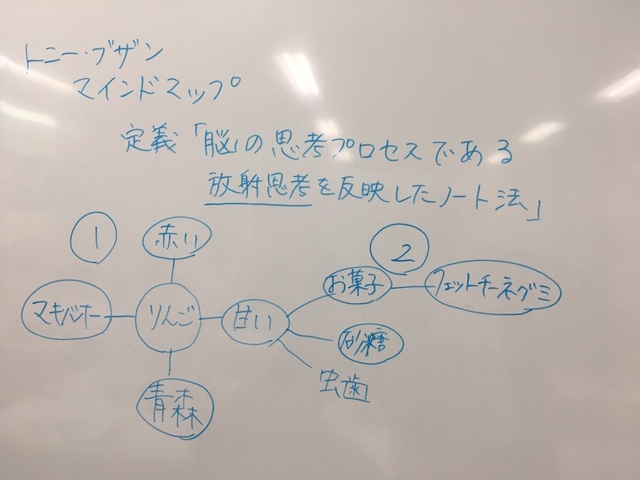 トニー・ブザン
マインドマップ
定義「「脳」の思考プロセスである
放射思考を反映したノート法」
1
赤い
2
お菓子
フェットチーネグミ
マキバオー
りんご
甘い
砂糖
虫歯
青森